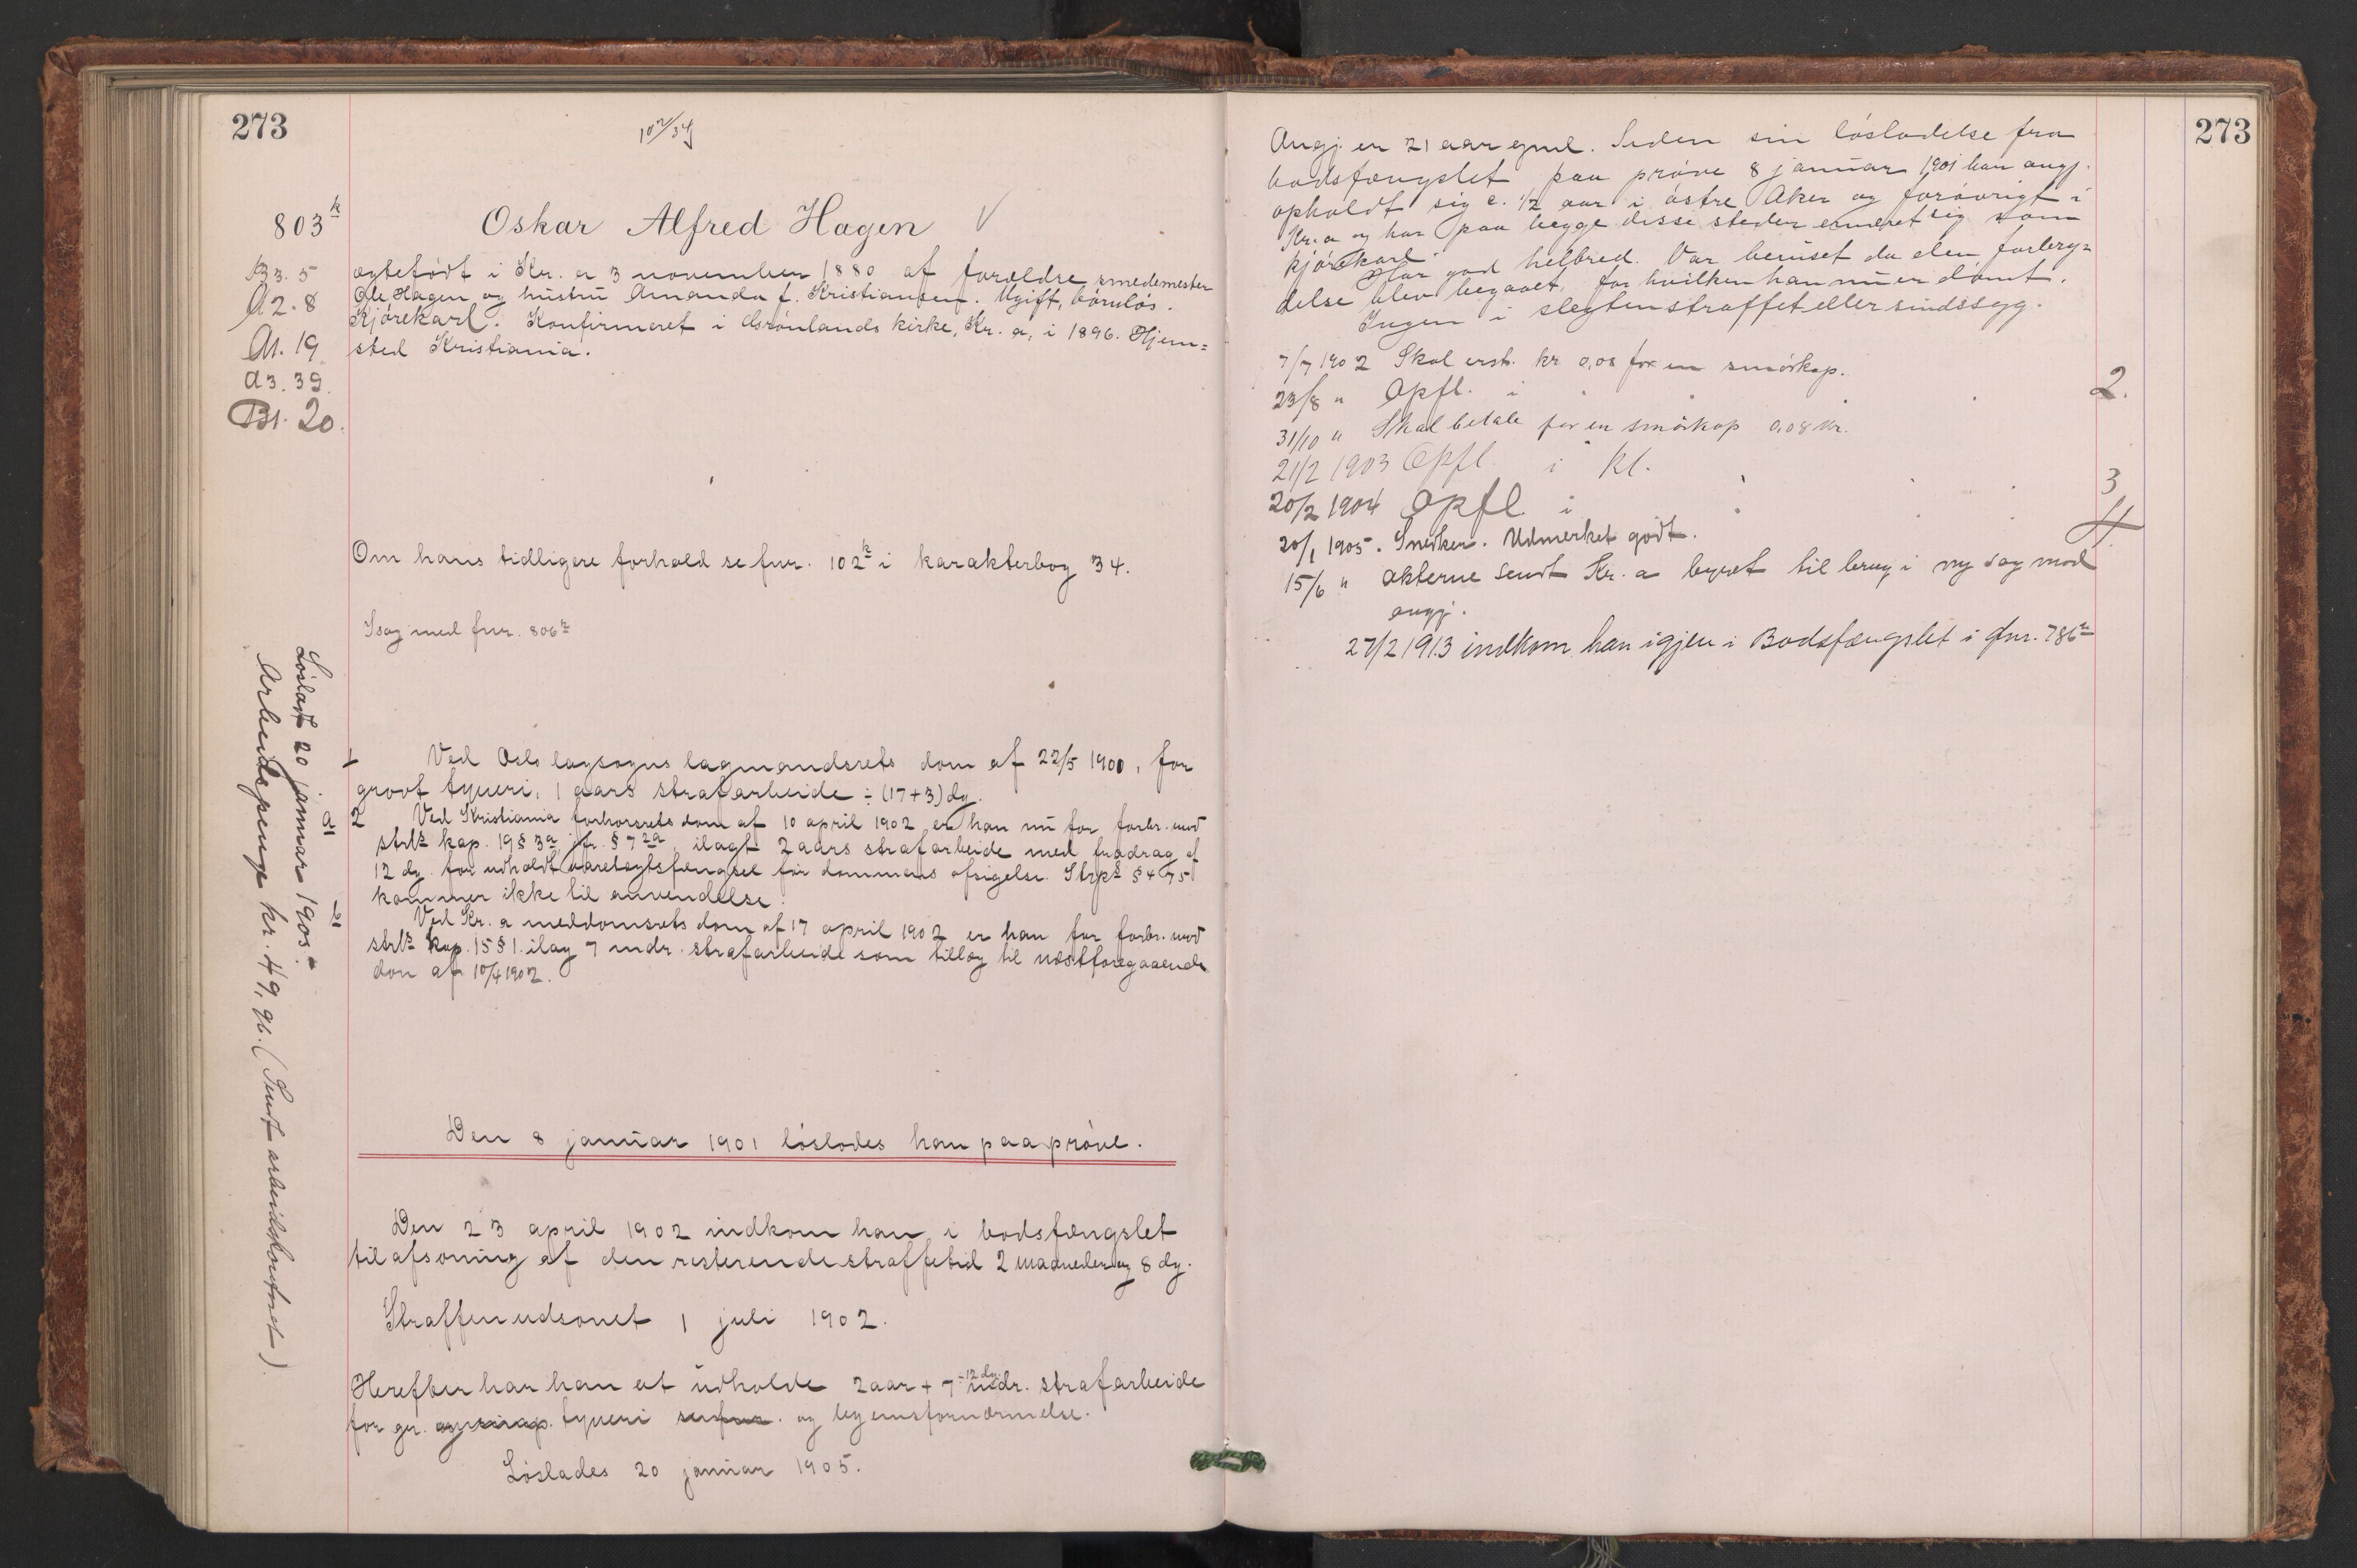 273
10²/34
803ᵏ
Oskar Alfred Hagen
B3. 5
A2. 8
A1. 19
A3. 39
B1. 20.
ægtefødt i Kr.a 3 november 1880 af forældre smedemester
Ole Hagen og hustru Amanda f. Kristiansen. Ugift, børnløs.
Kjørekarl. Konfirmeret i Grønlands kirke, Kr.a, i 1896. Hjem=
sted Kristiania.
Om hans tidligere forhold se fnr. 102ᵏ i karakterbog 34.
I sag med fnr. 806ᵏ
1 Ved Oslo lagsogns lagmandsrets dom af 22/5 1900, for
grovt tyveri, 1 aars strafarbeide ÷ (17+3) dg.
2 a Ved Kristiania forhørsrets dom af 10 april 1902 er han nu for forbr. mod
strls kap. 19 § 3a jfr. § 7 2a ilagt 2 aars strafarbeide med fradrag af
12 dg. for udholdt varetægtsfængsel før dommens afsigelse. Strpl § 475
kommer ikke til anvendelse.
b Ved Kr.a meddomsrets dom af 17 april 1902 er han for forbr. mod
strls kap. 15 § 1. ilag 7 mdr. strafarbeide som tillæg til næstforegaaende
dom af 10/4 1902.
Den 8 januar 1901 løslodes han paa prøve.
Den 23 april 1902 indkom han i bodsfængslet
til afsoning af den resterende straffetid 2 maaneder og 8 dg.
Straffen udsonet 1 juli 1902.
Herefter har han at udholde 2 aar + 7 mdr. ÷12 dg. strafarbeide
for gr. tyveri og legemsfornærmelse.
Løslades 20 januar 1905.
Løsladt 20 januar 1905.
Arbeidspenge kr. 49,96. (Sendt arbeidskontoret)
273
Angj. er 21 aar gml. Siden sin løsladelse fra
bodsfængslet paa prøve 8 januar 1901 har angj.
opholdt sig c. 1/2 aar i østre Aker og forøvrigt i
Kr.a og har paa begge disse steder ernæret sig som
kjørekarl.
Har god helbred. Var beruset da den forbry=
delse blev begaaet, for hvilken han nu er dømt.
Ingen i slegten straffet eller sindssyg.
7/7 1902 Skal erst. kr 0,08 for en smørkop.
23/8 " Opfl. i " " " 2.
31/10 " Skal betale for en smørkop 0,08 kr.
21/2 1903 Opfl. i kl. 3
20/2 1904 Opfl. i " " " 4.
20/1 1905. Snedker. Udmerket godt.
15/6 " Akterne sendt Kr.a byret til brug i ny sag mod
angj.
27/2 1913 indkom han igjen i Bodsfængslet i fnr. 786ᵏ